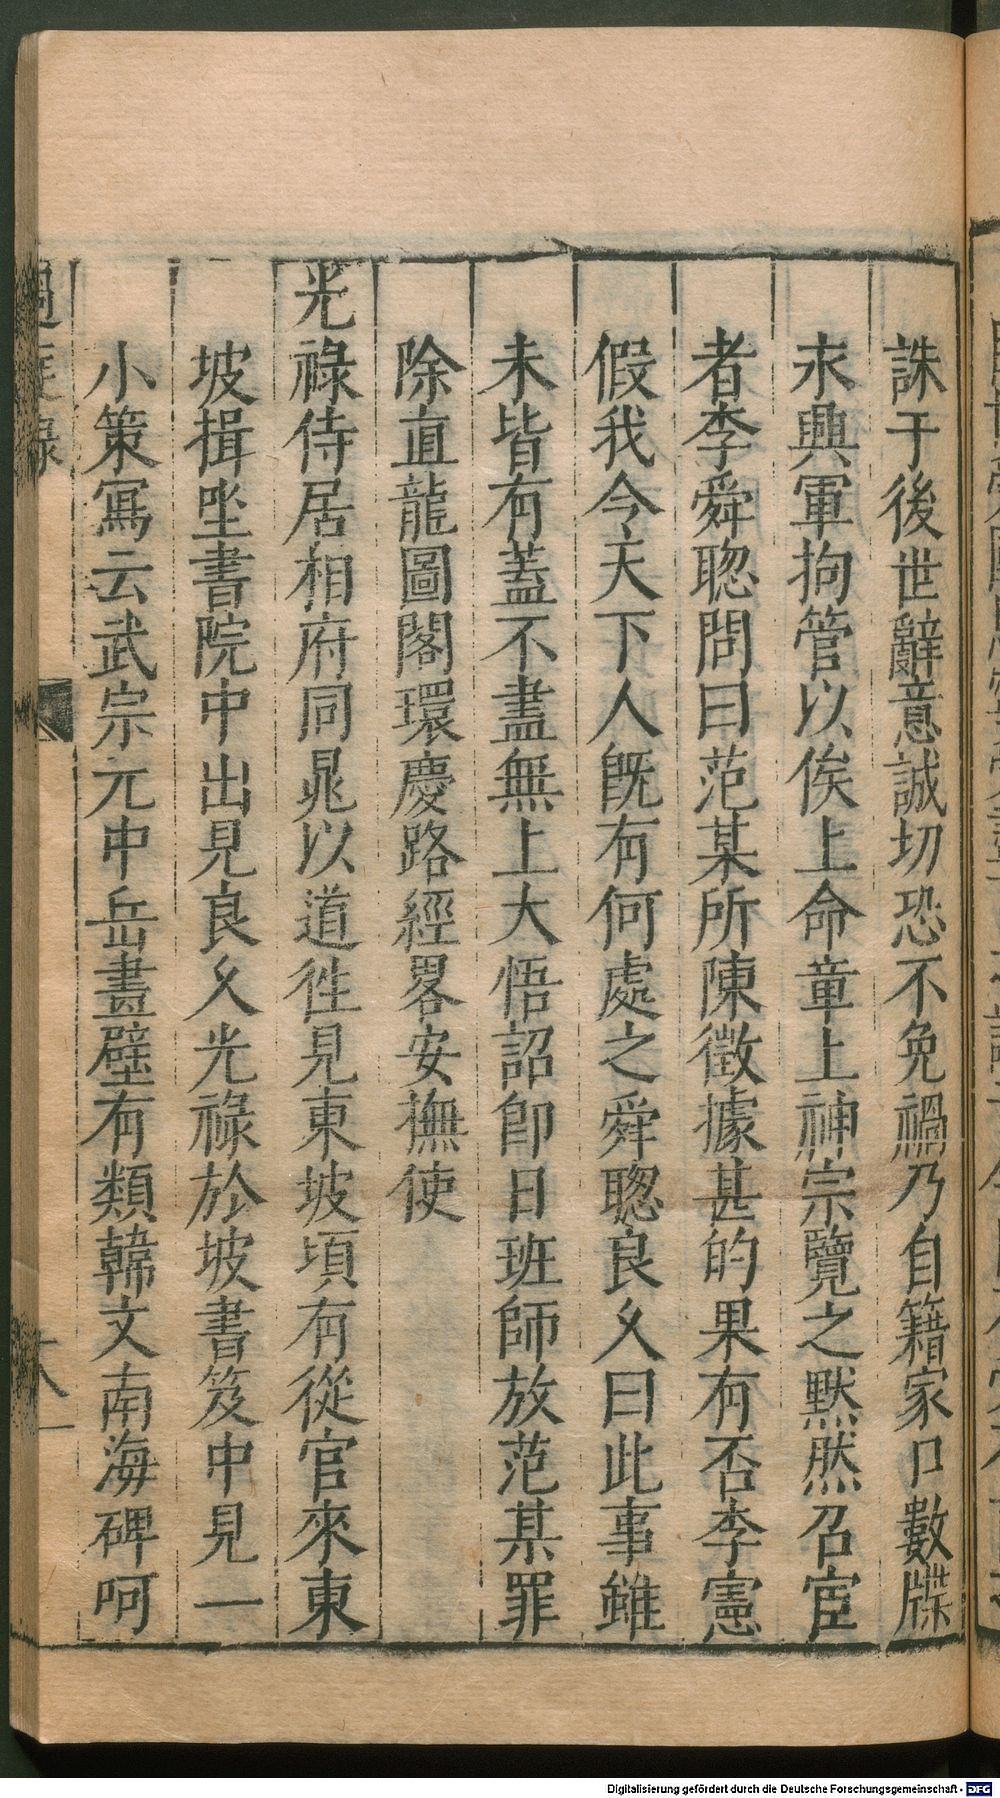 誅于後世辭意誠切恐不免禍乃自籍家口數牒
永興軍拘管以俟上命章上神宗覽之黙然召宦
者李舜聦問曰范某所陳徵據甚的果有否李憲
假我令天下人旣有何處之舜聦良乆曰此事雖
未皆有蓋不盡無上大悟詔卽日班師放范某罪
除直龍圖閣環慶路經畧安撫使
光祿侍居相府同晁以道徃見東坡頃有從官來東
坡揖坐書院中出見良乆光祿於坡書笈中見一
小策寫云武宗元中岳畫壁有類韓文南海碑呵
過庭錄
Digitalisierung gefördert durch die Deutsche Forschungsgemeinschaft - DFG